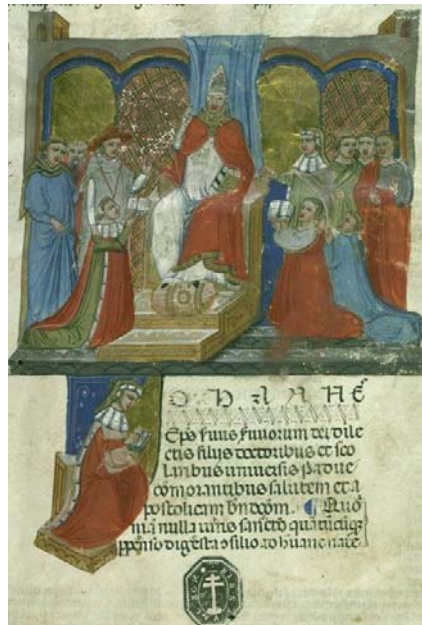 O H A N N E
Eps seruus seruorum dei dile
ctis filijs doctoribus et sco
laribus uniuersis padue
comorantibus salutem et a
postolicam bndcom. Quo
nia nulla iuris sanctio
digesta osilio ad humane nate